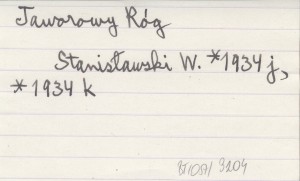 Jaworowy Róg
Stanisławski W. *1934 j,
*1934 k
3104